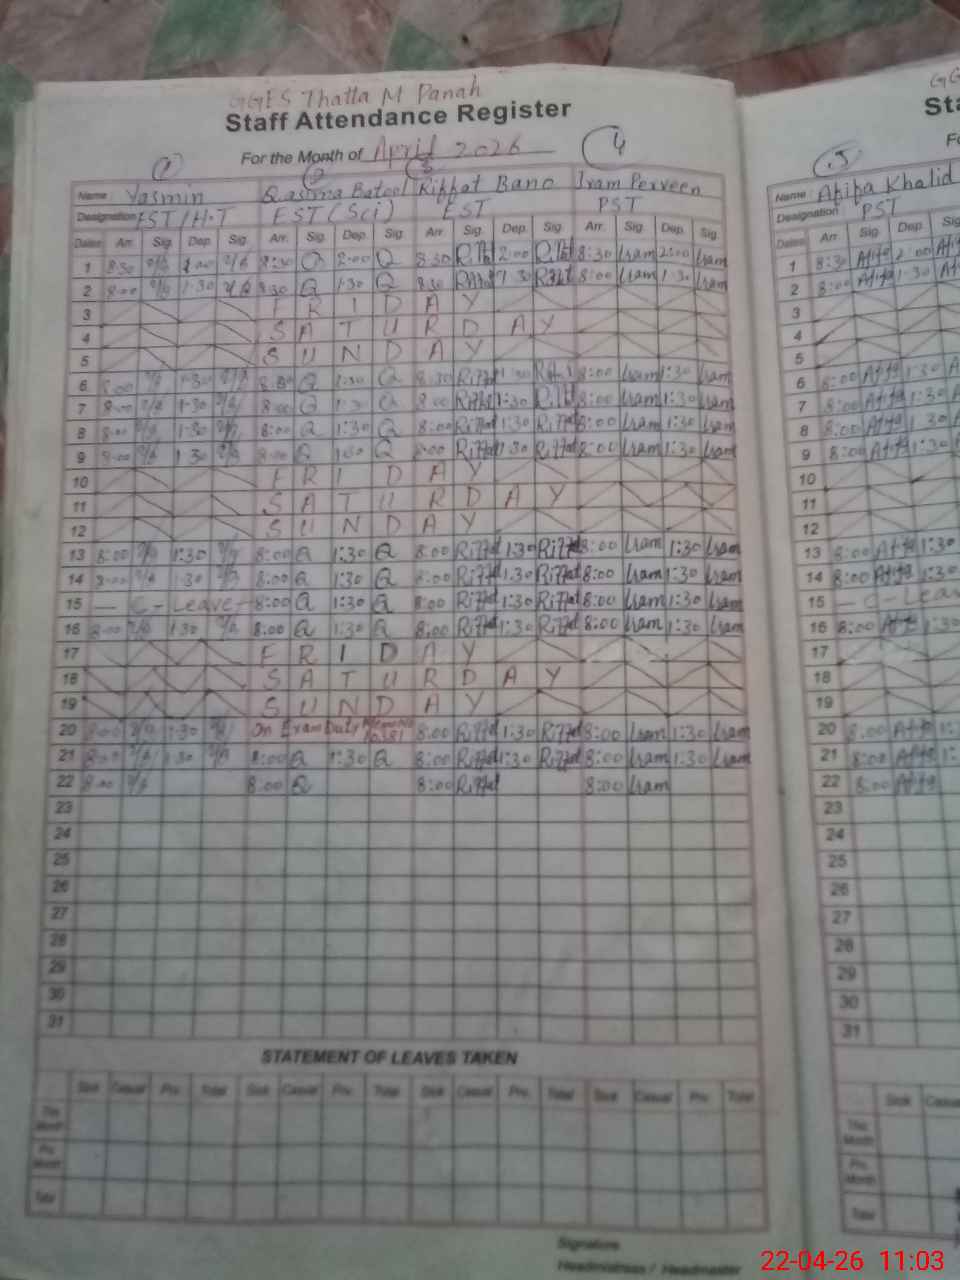 GGES Thatta M Panah
Staff Attendance Register
For the Month of April 2026
1 2 3 4
Name Yasmin Qasma Batool Riffat Bano Iram Perveen
Designation EST/H.T EST (Sci) EST PST
Dates Arr. Sig. Dep. Sig. Arr. Sig. Dep. Sig. Arr. Sig. Dep. Sig. Arr. Sig. Dep. Sig.
1 8:30 2:00 8:30 Q 2:00 Q 8:30 2:00 8:30 Iram 2:00 Iram
2 8:00 1:30 8:30 Q 1:30 Q 8:30 Riffat 1:30 Riffat 8:00 Iram 1:30 Iram
3 FRIDAY
4 SATURDAY
5 SUNDAY
6 8:00 1:30 8:30 Q 1:30 Q 8:30 Riffat 1:30 8:00 Iram 1:30 Iram
7 8:00 1:30 8:00 Q 1:30 Q 8:00 Riffat 1:30 8:00 Iram 1:30 Iram
8 8:00 1:30 8:00 Q 1:30 Q 8:00 Riffat 1:30 Riffat 8:00 Iram 1:30 Iram
9 8:00 1:30 8:00 Q 1:30 Q 8:00 Riffat 1:30 Riffat 8:00 Iram 1:30 Iram
10 FRIDAY
11 SATURDAY
12 SUNDAY
13 8:00 1:30 8:00 Q 1:30 Q 8:00 Riffat 1:30 Riffat 8:00 Iram 1:30 Iram
14 8:00 1:30 8:00 Q 1:30 Q 8:00 Riffat 1:30 Riffat 8:00 Iram 1:30 Iram
15 — C-Leave — 8:00 Q 1:30 Q 8:00 Riffat 1:30 Riffat 8:00 Iram 1:30 Iram
16 8:00 1:30 8:00 Q 1:30 Q 8:00 Riffat 1:30 Riffat 8:00 Iram 1:30 Iram
17 FRIDAY
18 SATURDAY
19 SUNDAY
20 8:00 1:30 On Exam Duty 8:00 Riffat 1:30 Riffat 8:00 Iram 1:30 Iram
21 8:00 1:30 8:00 Q 1:30 Q 8:00 Riffat 1:30 Riffat 8:00 Iram 1:30 Iram
22 8:00 8:00 Q 8:00 Riffat 8:00 Iram
23
24
25
26
27
28
29
30
31
STATEMENT OF LEAVES TAKEN
Sick Casual Prv. Total Sick Casual Prv. Total Sick Casual Prv. Total Sick Casual Prv. Total
This Month
Prv. Month
Total
Signature
Headmistress / Headmaster
GG
Sta
5
Name : Afifa Khalid
Designation PST
Dates Arr. Sig. Dep.
1 8:30 Afifa 2:00
2 8:00 Afifa 1:30
3
4
5
6 8:00 Afifa 1:30
7 8:00 Afifa 1:30
8 8:00 Afifa 1:30
9 8:00 Afifa 1:30
10
11
12
13 8:00 Afifa 1:30
14 8:00 Afifa 1:30
15 — C-Leav
16 8:00 Afifa 1:30
17
18
19
20 8:00 Afifa
21 8:00 Afifa
22 8:00 Afifa
23
24
25
26
27
28
29
30
31
Sick Casu
This Month
Prv. Month
Total
22-04-26 11:03